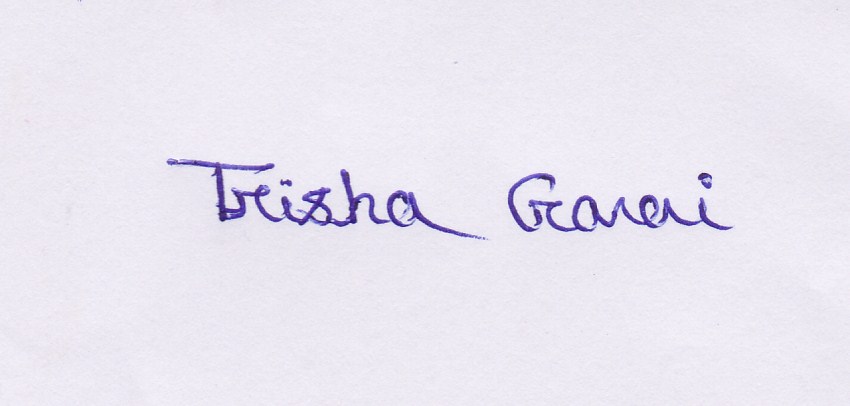 Trisha Garai